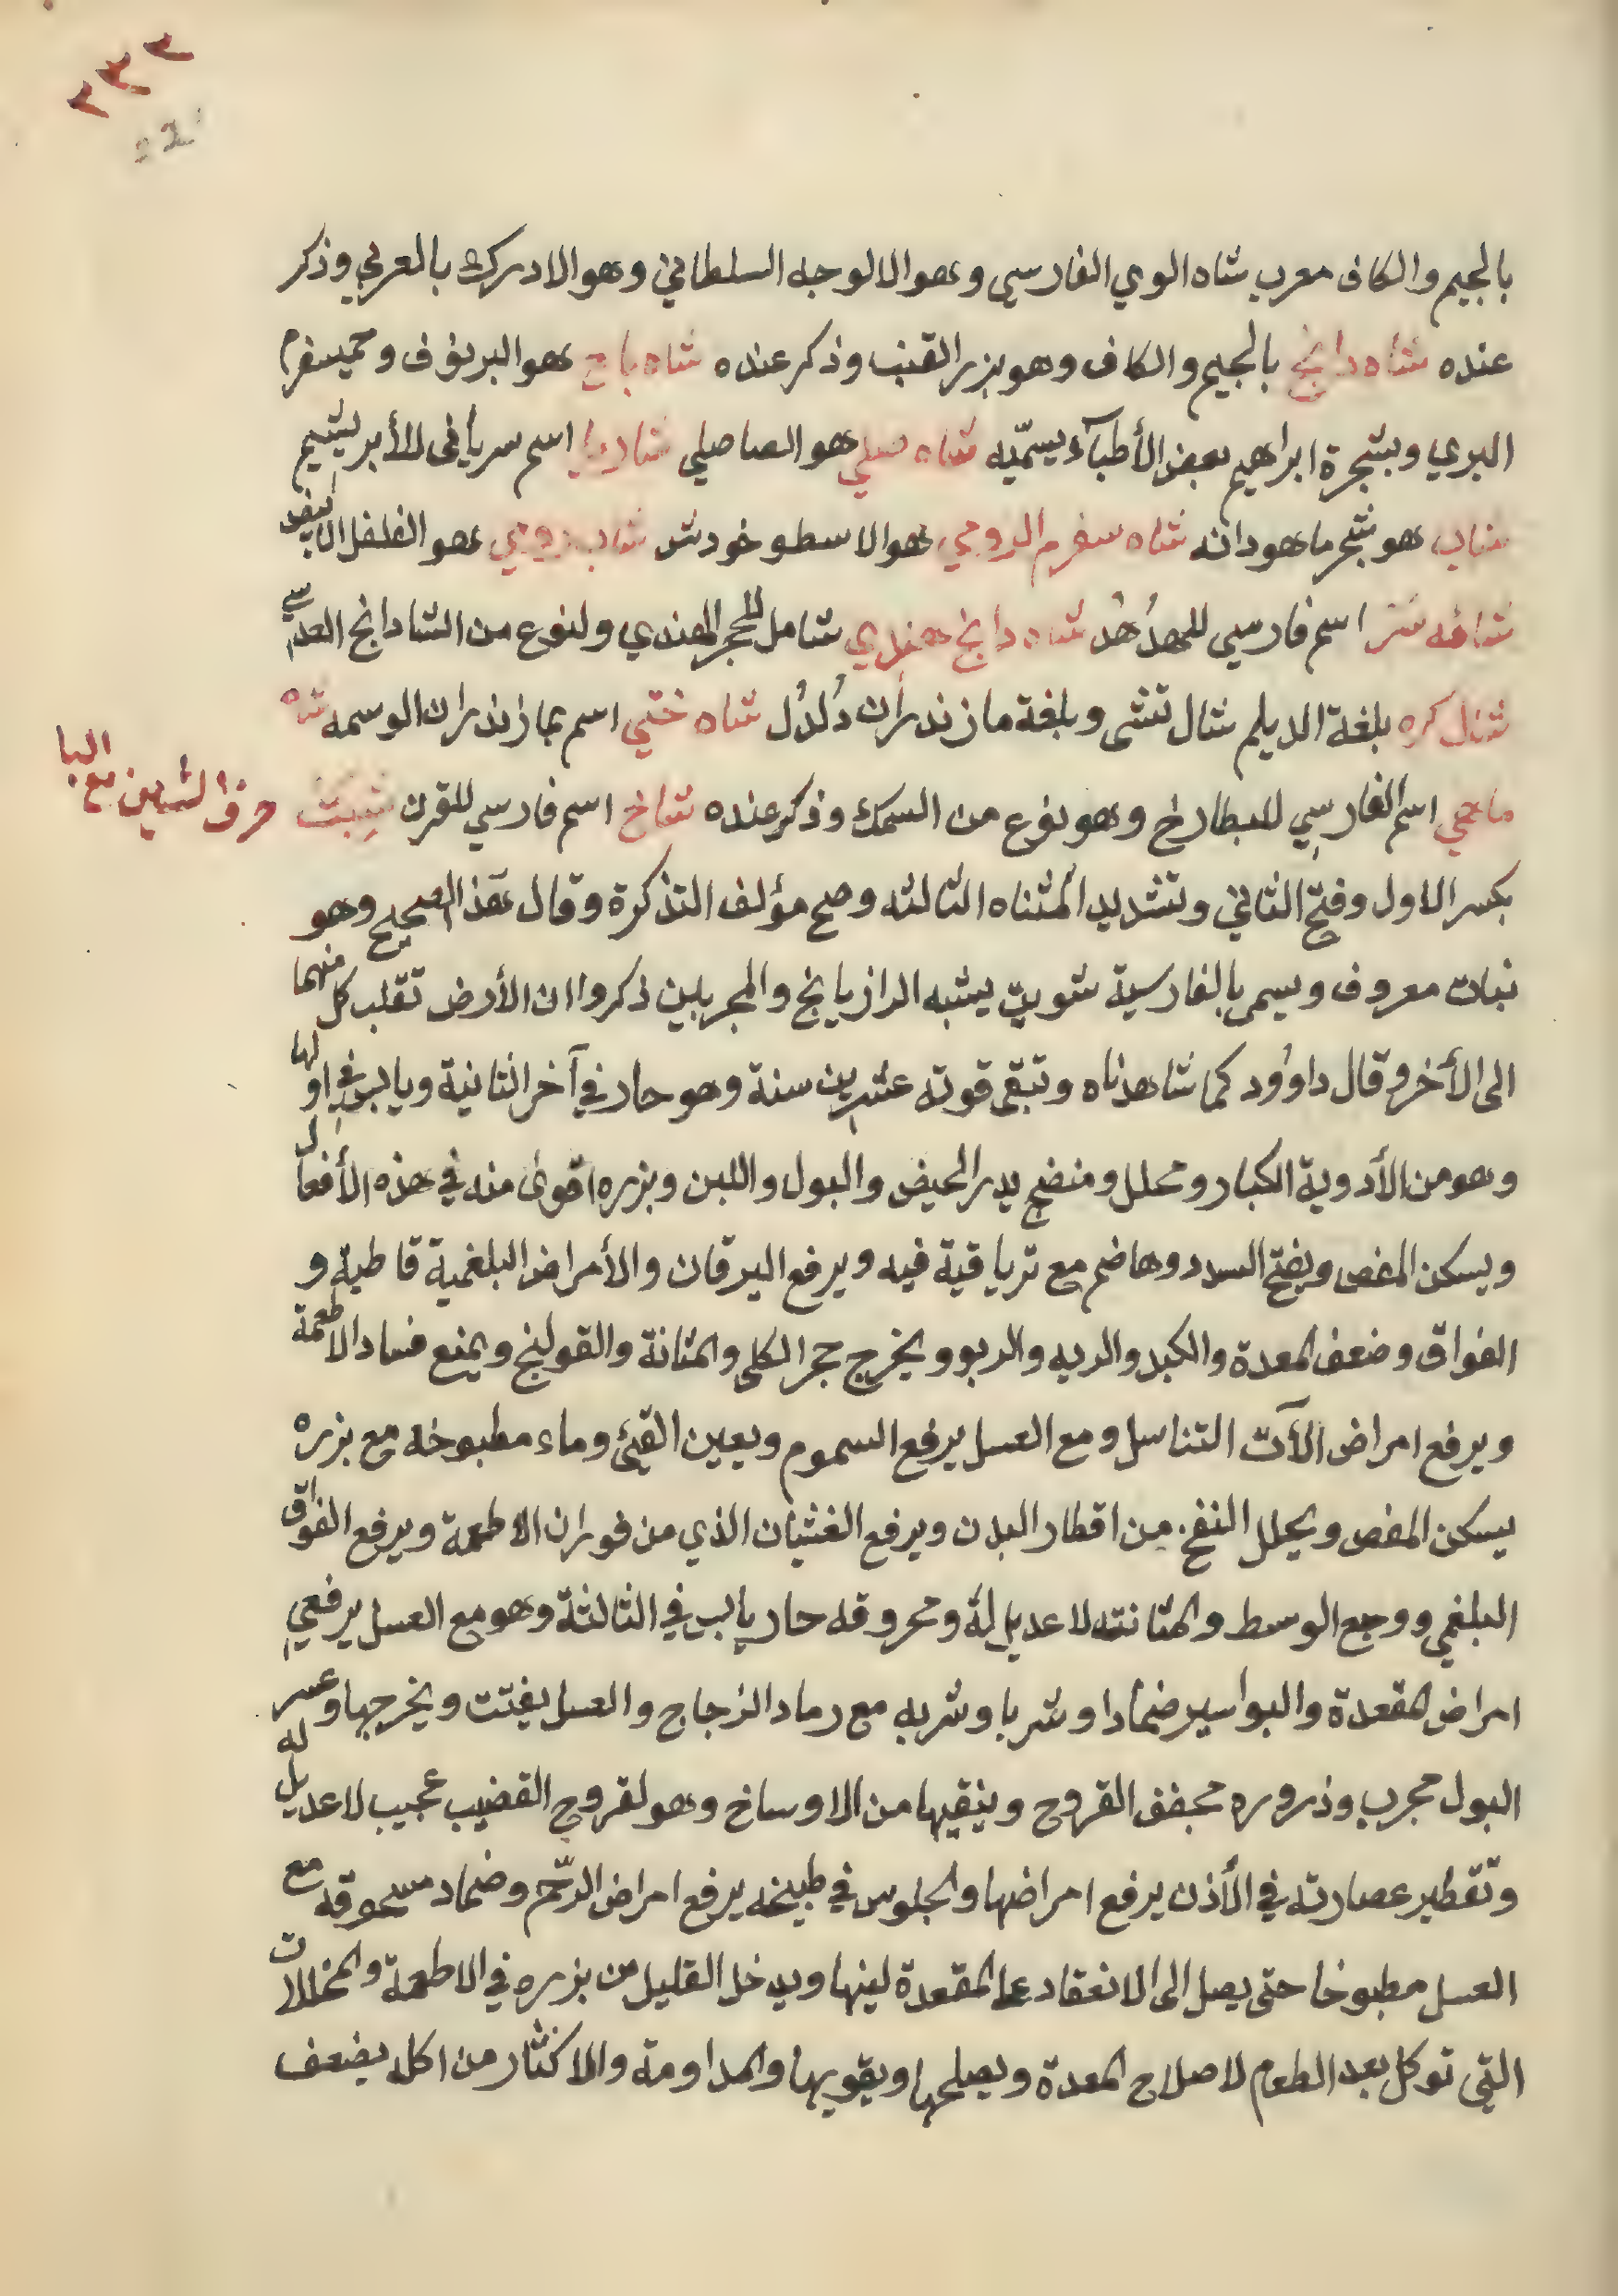 ٣٣٣
بالجيم والكاف معرب شاه الوي الفارسي وهو الالوجه السلطاني وهو الادرك بالعربي وذكر
عنده شاه دانج بالجيم والكاف وهو بزر القنب وذكر عنده شاه بانج هو البرنوف وحميسفرم
البري وبشجرة ابراهيم بعض الأطبآء يسمّيه شاه سلي هو الصاصلي اسم سرياني للأبريشيم
شاب هو شجر ماهودانه شاه سفرم الرومي هو الاسطوخودش شاب رومي هو الفلفل الابيض
شانه سر اسم فارسي للهدُهُد شاه دانج هندي شامل للحجر الهندي ولنوع من الشادانج العدسي
شال كره بلغة الديلم شال تشى وبلغة مازندران دُلدُل شاه ختي اسم بمازندران الوسمه شاه
ماهي اسم الفارسي للبطارخ وهو نوع من السمك وذكر عنده شاخ اسم فارسي للقرن شِبِتّ
حرف الشين مع البا
بكسر الاول وفتح الثاني وتشديد المثناه الثالثه وصح مؤلف التذكرة وقال هذا الصحيح وهو
نبات معروف ويسمى بالفارسية شويت يشبه الرازيانج والمجربين ذكروا ان الأرض تقلب كل منهما
الى الأخر وقال داوُود كما شاهدناه وتبقى قوته عشرين سنة وهو حار في آخر الثانية ويابس في اولها
وهو من الأدوية الكبار ومحلل ومنضج يدر الحيض والبول واللبن وبزره اقوى منه في هذه الأفعال
ويسكن المغص ويفتح السدد وهاضم مع ترياقية فيه ويرفع اليرقان والأمراض البلغمية قاطبة و
الفواق وضعف المعدة والكبد والريه والربو ويخرج حجر الكلى والمثانة والقولنج ويمنع فساد الاطعمة
ويرفع امراض الآت التناسل ومع العسل يرفع السموم ويعين القيئ وماء مطبوخه مع بزره
يسكن المغص ويحلل النفخ من اقطار البدن ويرفع الغثيان الذي من فوران الاطعمة ويرفع الفواق
البلغمي ووجع الوسط والمثانته لا عديل لهُ ومحروقه حار يابس في الثالثة وهو مع العسل يرفعي
امراض المقعدة والبواسير ضمادا وشربا وشربه مع رماد الزجاج والعسل يفتت ويخرجها وعسر
البول مجرب وذروره مجفف القروح وينقيها من الاوساخ وهو لقروح القضيب عجيب لا عديل له
وتقطير عصارته في الأذن يرفع امراضها والجلوس في طبيخه يرفع امراض الرّحم وضماد مسحوقه مع
العسل مطبوخا حتى يصل الى الانعقاد على المقعدة لينها ويدخل القليل من بزره في الاطعمة والمخللات
التي توكل بعد الطعام لاصلاح المعدة ويصلحها ويقويها والمداومة والاكثار من اكله يضعف